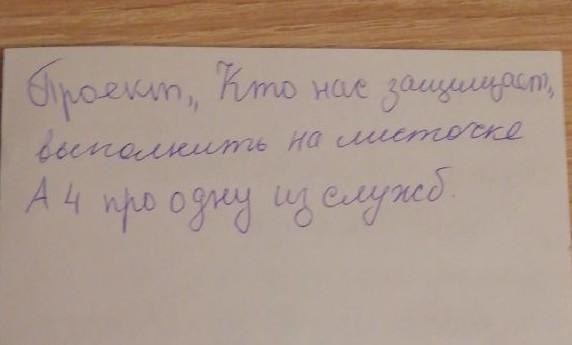 Проект „ Кто нас защищает„
выполнить на листочке
А 4 про одну из служб.